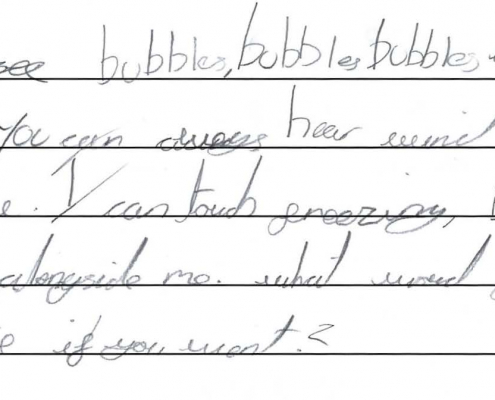 see bubbles, bubbles, bubbles,
You can always hear wind
e. I can touch freezing,
alongside me. what would
e if you want.?